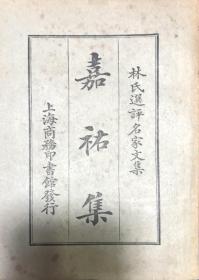 林氏選評名家文集
嘉祐集
上海商務印書館發行